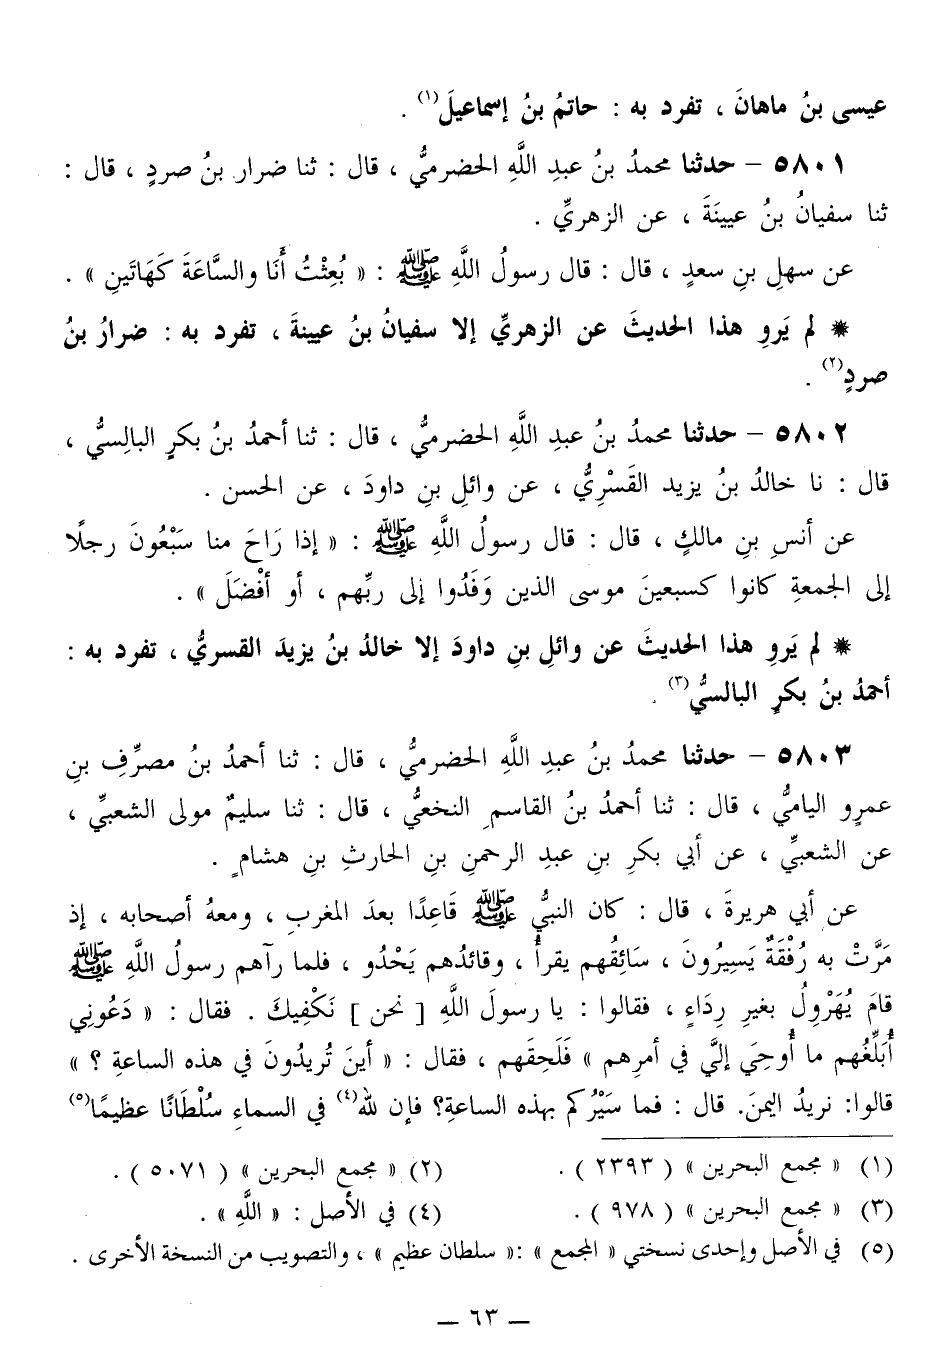 عيسى بنُ ماهانَ ، تفرد به : حاتمُ بنُ إسماعيلَ(١) .
٥٨٠١ – حدثنا محمدُ بنُ عبدِ اللَّهِ الحضرميُّ ، قال : ثنا ضرار بنُ صردٍ ، قال :
ثنا سفيانُ بنُ عيينَةَ ، عن الزهريِّ .
عن سهلِ بنِ سعدٍ ، قال : قال رسولُ اللَّهِ ﷺ : « بُعِثْتُ أَنَا والسَّاعَةَ كَهَاتَينِ » .
* لم يَروِ هذا الحديثَ عن الزهريِّ إلا سفيانُ بنُ عيينةَ ، تفرد به : ضرارُ بنُ
صردٍ(٢) .
٥٨٠٢ – حدثنا محمدُ بنُ عبدِ اللَّهِ الحضرميُّ ، قال : ثنا أحمدُ بنُ بكرٍ البالِسيُّ ،
قال : نا خالدُ بنُ يزيد القَسْرِيُّ ، عن وائلِ بنِ داودَ ، عن الحسن .
عن أنسِ بنِ مالكٍ ، قال : قال رسولُ اللَّهِ ﷺ : « إذا رَاحَ منا سَبْعُونَ رجلًا
إلى الجمعةِ كانوا كسبعينَ موسى الذين وَفَدُوا إلى ربِّهم ، أو أفْضَلَ » .
* لم يَروِ هذا الحديثَ عن وائلِ بنِ داودَ إلا خالدُ بنُ يزيدَ القسريُّ ، تفرد به :
أحمدُ بنُ بكرٍ البالسيُّ(٣) .
٥٨٠٣ – حدثنا محمدُ بنُ عبدِ اللَّهِ الحضرميُّ ، قال : ثنا أحمدُ بنُ مصرِّفِ بنِ
عمرٍو الياميُّ ، قال : ثنا أحمدُ بنُ القاسمِ النخعيُّ ، قال : ثنا سليمٌ مولى الشعبيِّ ،
عن الشعبيِّ ، عن أبي بكرِ بنِ عبدِ الرحمنِ بنِ الحارثِ بنِ هشامٍ .
عن أبي هريرةَ ، قال : كان النبيُّ ﷺ قَاعِدًا بعدَ المغربِ ، ومعهُ أصحابه ، إذ
مَرَّتْ به رُفْقَةٌ يَسِيرُونَ ، سَائِقُهم يقرأُ ، وقائدُهم يَحْدُو ، فلما رآهم رسولُ اللَّهِ ﷺ
قامَ يُهَرْوِلُ بغيرِ رِدَاءٍ ، فقالوا : يا رسولَ اللَّهِ [ نحن ] نَكْفِيكَ . فقال : « دَعُونِي
أُبَلِّغُهم ما أُوحِيَ إليَّ في أمرِهم » فَلَحِقَهم ، فقال : « أينَ تُرِيدُونَ في هذه الساعةِ ؟ »
قالوا: نريدُ اليمنَ. قال : فما سَيْرُكم بهذه الساعةِ؟ فإن للهِ(٤) في السماءِ سُلْطَانًا عظيمًا(٥)
(١) « مجمع البحرين » ( ٢٣٩٣ ) . (٢) « مجمع البحرين » ( ٥٠٧١ ) .
(٣) « مجمع البحرين » ( ٩٧٨ ) . (٤) في الأصل : « اللَّهِ » .
(٥) في الأصل وإحدى نسختي « المجمع » :« سلطان عظيم » ، والتصويب من النسخة الأخرى .
– ٦٣ –